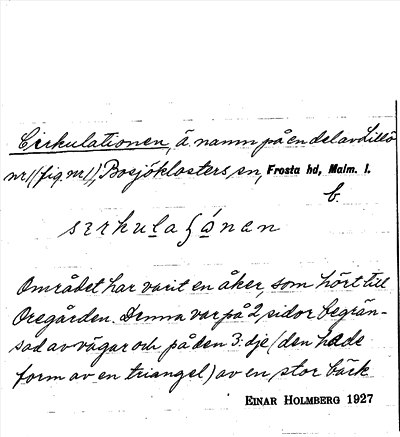 Cirkulationen, ä. namn på en del av Lillö
nr 1 (fig. nr 1), Bosjöklosters sn, Frosta hd, Malm. l.
b.
sirkulaʃonen
Området har varit en åker, som hört till
Oregården. Denna var på 2 sidor begrän-
sad av vägar och på den 3:dje (den hade
form av en triangel) av en stor bäck
EINAR HOLMBERG 1927